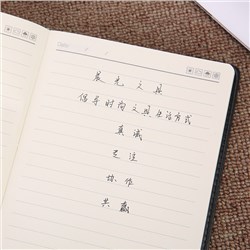 晨光文具
倡导时尚文具生活方式
真诚
专注
协作
共赢